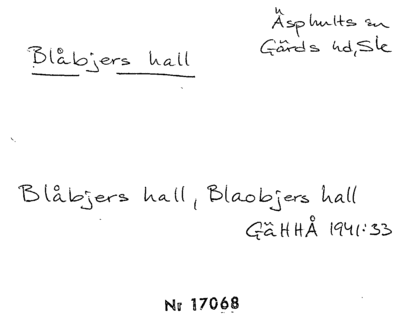 Äsphults sn
Gärds hd, Sk
Blåbjers hall
Blåbjers hall, Blaobjers hall
GäHHÅ 1941:33
Nr 17068